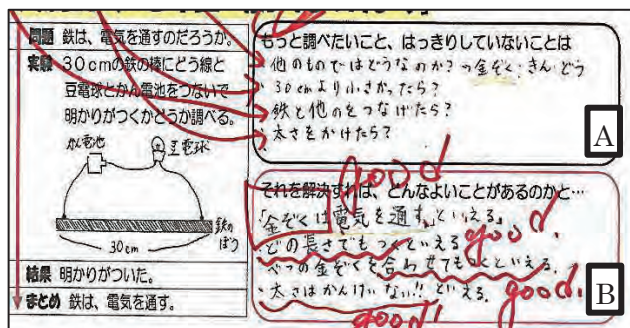 問題 鉄は、電気を通すのだろうか。
実験 30cmの鉄の棒にどう線と
豆電球とかん電池をつないで
明かりがつくかどうか調べる。
かん電池
豆電球
鉄の
ぼう
30cm
結果 明かりがついた。
まとめ 鉄は、電気を通す。
もっと調べたいこと、はっきりしていないことは
・他のものではどうなのか?→金ぞく・きん、どう
・30cmより小さかったら?
・鉄と他のをつなげたら?
・太さをかけたら?
A
good
それを解決すれば、どんなよいことがあるのかと…
「金ぞくは電気を通す」といえる
どの長さでもつくといえる good.
べつの金ぞくを合わせてもつくといえる.
・太さはかんけいない!!といえる. good.
good!
B